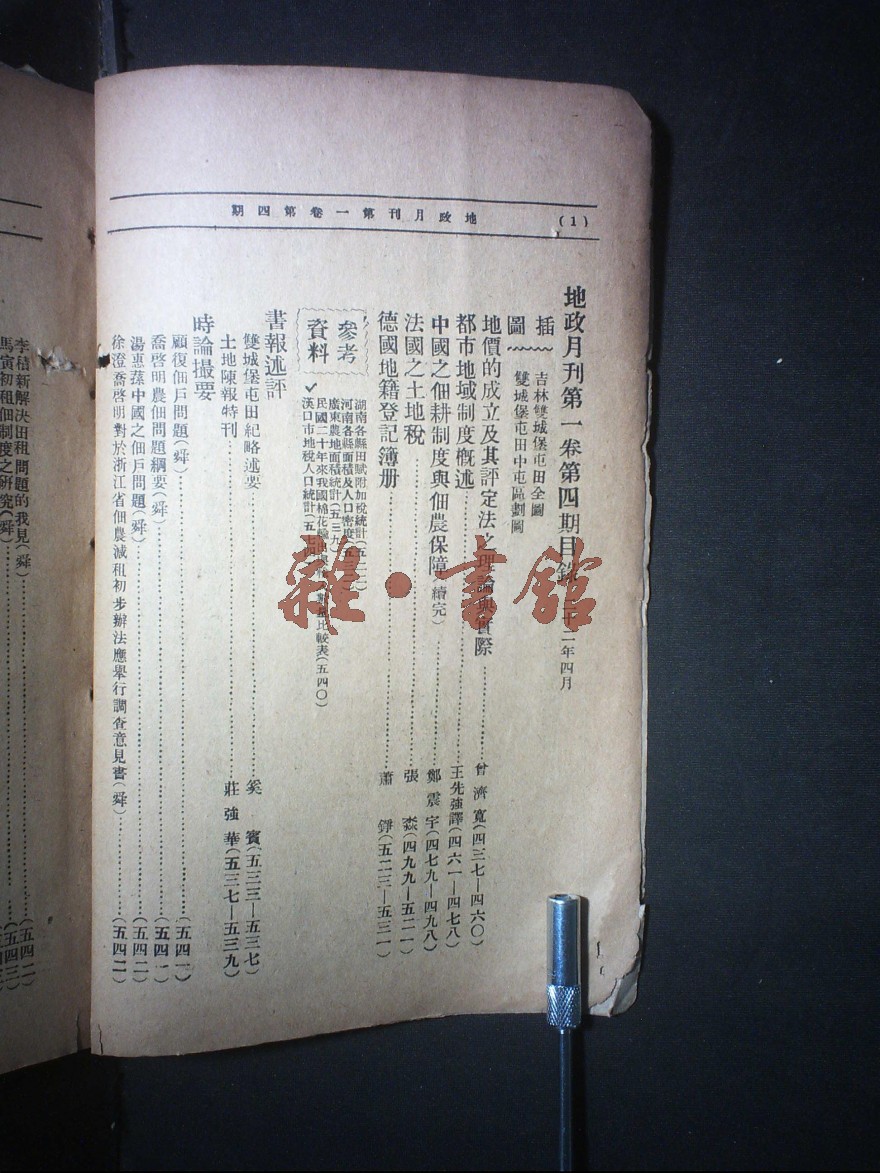 (1)
地政月刊第一卷第四期
地政月刊第一卷第四期目錄 二十二年四月
插圖
吉林雙城堡屯田全圖
雙城堡屯田中屯區劃圖
地價的成立及其評定法之理論與實際 曾濟寬(四三七—四六〇)
都市地域制度槪述 王先強譯(四六一—四七八)
中國之佃耕制度與佃農保障(續完) 鄭震宇(四七九—四九八)
法國之土地稅 張淼(四九九—五二一)
德國地籍登記簿册 蕭錚(五二三—五三一)
參考資料
湖南各縣田賦附加稅統計
河南各縣面積及人口密度
廣東農地面積統計(五三九)
民國二十年來我國棉花 比較表(五四〇)
漢口市地稅人口統計
書報述評
雙城堡屯田紀略述要 奚賓(五三三—五三七)
土地陳報特刊 莊強華(五三七—五三九)
時論撮要
顧復佃戶問題(舜) (五四一)
喬啓明農佃問題綱要(舜) (五四一)
湯惠蓀中國之佃戶問題(舜) (五四二)
徐澄喬啓明對於浙江省佃農減租初步辦法應舉行調查意見書(舜) (五四二)
李積新解決田租問題的我見(舜) (五四二)
馬寅初租佃制度之硏究(舜)
雜·書館